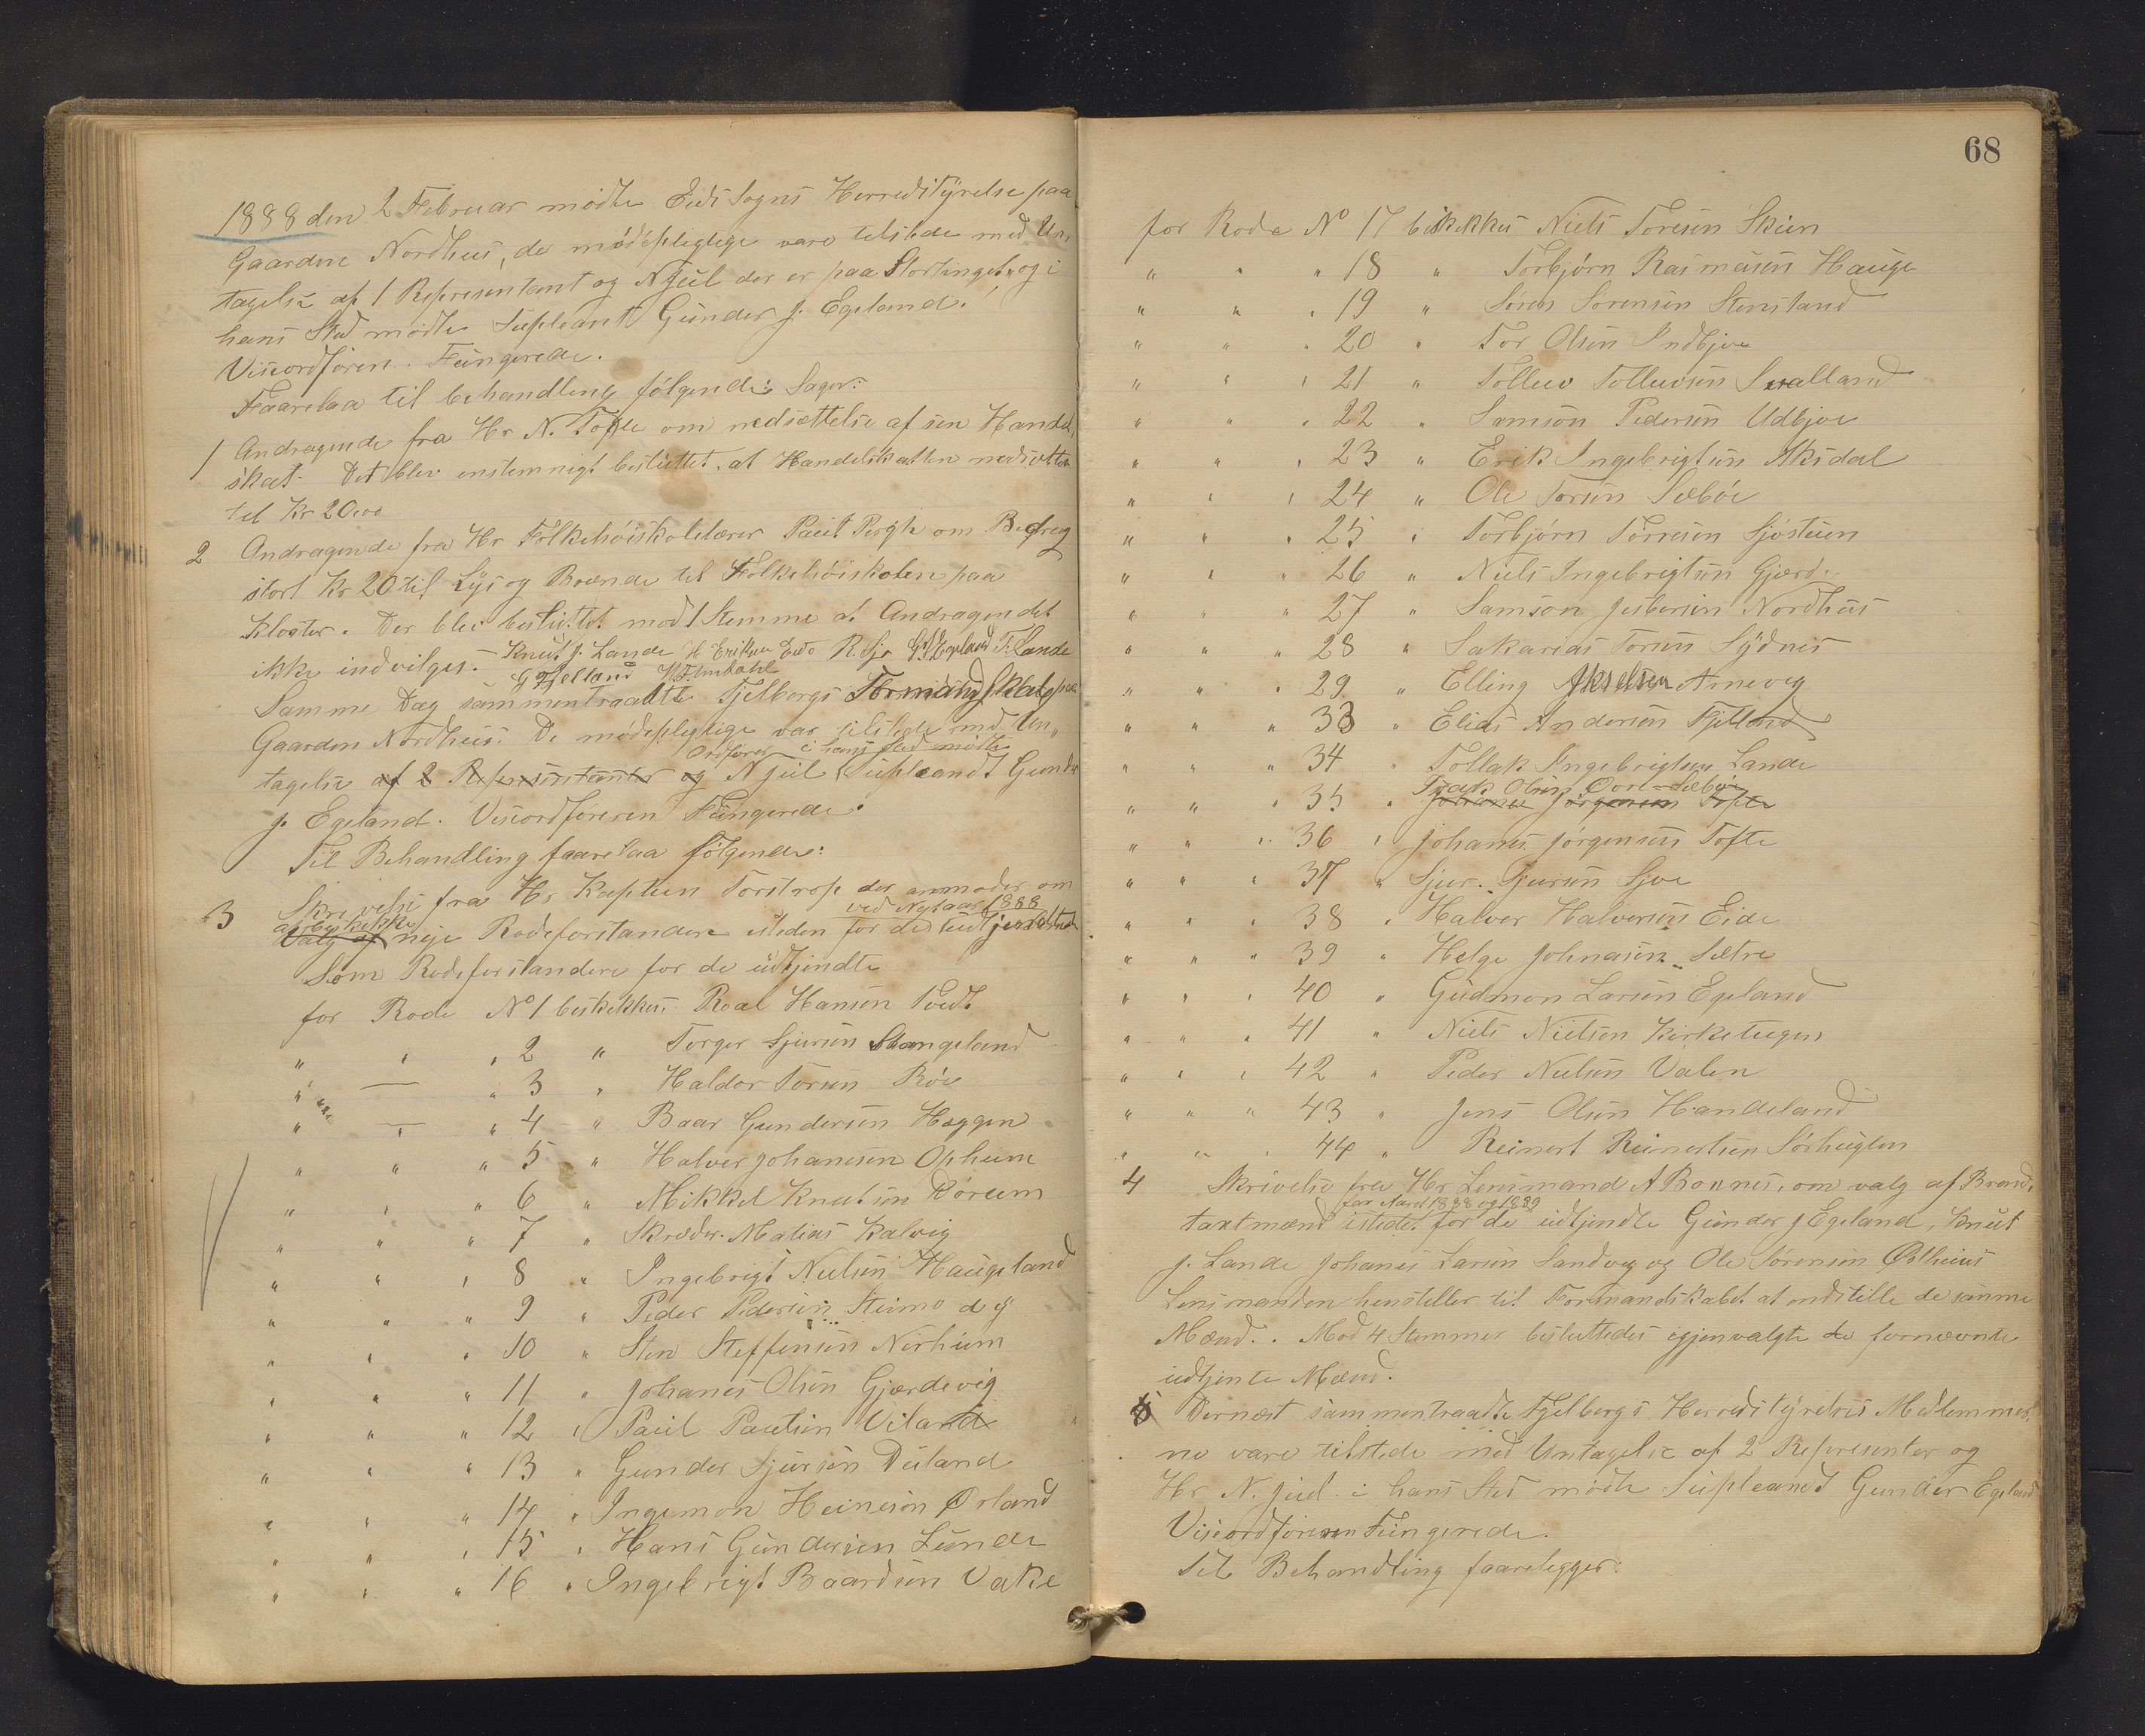 1888 den 2 Februar mødte Eids Sogns Herredstyrelse paa
Gaarden Nordhus, de mødepligtige vare tilstede med Un,
tagelse af 1 Representant og N Juel der er paa Stortinget, og i
hans Sted mødte Supleant Gunder J. Egeland.
Viseordføren Fungerede.
Faarelaa til behandling følgende Sager:
1 Andragende fra Hr N. Tofte om nedsættelse af sin Handel,
skat. Det blev enstemnigt besluttet, at Handelskatten nedsættes
til Kr 20,00
2 Andragende fra Hr Folkehøiskolelærer Paul Pergh om Bedrag
stort Kr 20 til Lys og Brænde til Folkehøiskolen paa
Kloster. Der blev besluttet mod 1 Stemme at Andragendet
ikke indvilges. Knut J. Lande H Eriksen Eide R. Sjo G J Egeland T. Lande
G Fjelland
Samme Dag sammentraadte Fjelbergs Formandskab paa
Gaarden Nordhus. De mødepligtige var tilstede med Un,,
Ordfører i hans sted mødte
tagelse af 2 Representanter og N Juel Supleandt Gunder
J. Egeland. Viseordføreren Fungerede.
Til Behandling faarelaa følgende:
3 Skrivelse fra Hr Kaptein Torstrop der anmoder om
ved Nytaar 1888
at beskikke
Valg af nye Rodeforstandere isteden for de udtjendte
Som Rodeforstandere for de udtjendte
for Rode No 1 beskikkes Roal Hansen Tvedt
" " " 2 " Torger Sjursen Stangeland
" — " 3 " Haldor Torsen Røe
" — " 4 " Baar Gundersen Høggen
" " " 5 " Halver Johanesen Opheim
" " " 6 " Mikkel Knutsen Børeim
" " " 7 " Skreder Matias Kalvig
" " " 8 " Ingebrigt Nielsen Haugeland
" " " 9 " Peder Pedersen Steimo d y
" " " 10 " Sten Steffensen Nerheim
" " " 11 " Johanes Olsen Gjerdevig
" " " 12 " Paul Paulsen Viland
" " " 13 " Gunder Sjursen Døiland
" " " 14 " Ingemon Heinesøn Ørland
" " " 15 " Hans Gundersen Lunde
" " " 16 " Ingebrigt Baardsen Vake
68
for Rode No 17 beskikkes Niels Toresen Skeen
" " " 18 " Torbjørn Rasmusen Hauge
" " " 19 " Søren Sørensen Stensland
" " " 20 " Tor Olsen Indbjoe
" " " 21 " Tollew Tollewsen Svalland
" " " 22 " Samson Pedersen Udbjoe
" " " 23 " Erik Ingebrigtsen Aksdal
" " " 24 " Ole Torsen Sæbøe
" " " 25 " Torbjørn Torresen Sjøstuen
" " " 26 " Niels Ingebrigtsen Gjærde
" " " 27 " Samson Jesbersen Nordhus
" " " 28 " Sakarias Torsen Sydnes
" " " 29 " Elling Akselsen Arneveg
" " " 33 " Elias Andersen Fjelland
" " " 34 " Tollak Ingebrigtsen Lande
Isak Olsen Øvre-Sæbøe
" " " 35 " Johanes Jørgensen Tofte
" " " 36 " Johanes Jørgensen Tofte
" " " 37 " Sjur Sjursen Sjoe
" " " 38 " Halver Halversen Eide
" " " 39 " Helge Johnasen Sætre
" " " 40 " Gudmon Larsen Egeland
" " " 41 " Niels Nielsen Kirketeigen
" " " 42 " Peder Nielsen Valen
" " " 43 " Jens Olsen Handeland
" " " 44 " Reinert Reinertsen Sørhuglen
4 Skrivelse fra Hr Lensmand A Bonnes, om valg af Brand,
for Aaret 1888 og 1889
taxtmænd istedet for de udtjendte Gunder J Egeland, Knut
J. Lande Johanes Larsen Sandveg og Ole Sørensen Østhuus
Lensmanden henstiller til Formandskabet at indstille de samme
Mænd. Mod 4 Stemmer besluttedes igjenvalgte de fornævnte
udtjente Mænd.
5 Dernæst sammentraadte Fjelbergs Herredstyrelses Medlemmer,
ne vare tilstede med Untagelse af 2 Representer og
Hr N. Juel i hans Sted mødte Supleandt Gunder Egeland
Viseordføreren Fungerede.
Til Behandling faareligger: